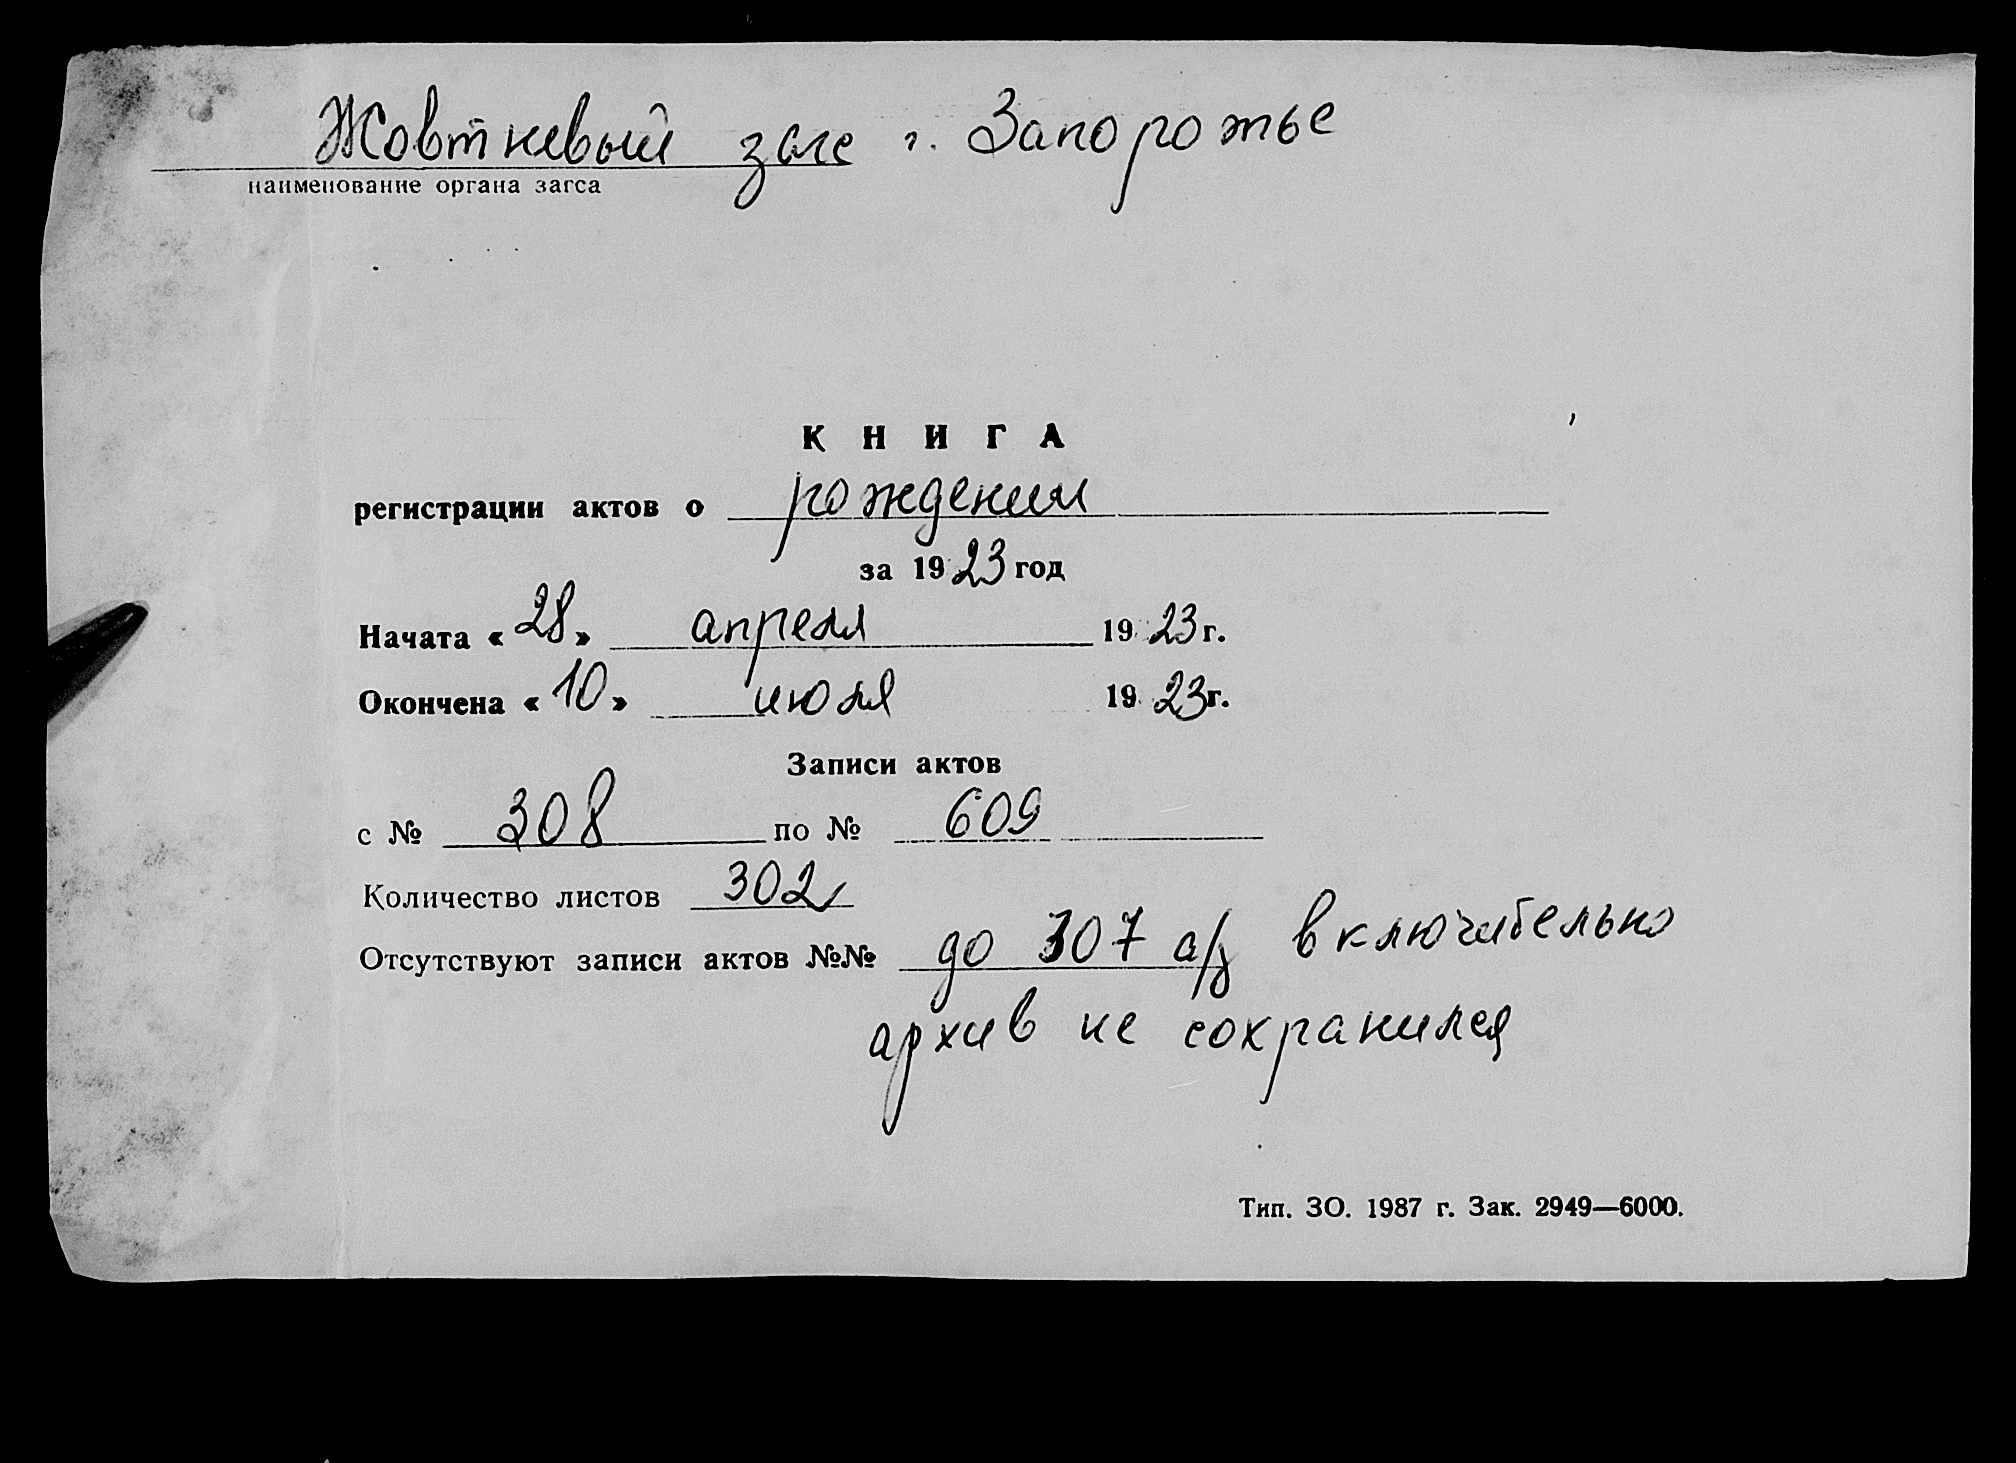 Жовтневый загс г. Запорожье
наименование органа загса
КНИГА
регистрации актов о рождении
за 1923 год
Начата «28» апреля 1923 г.
Окончена «10» июля 1923 г.
Записи актов
с № 308 по № 609
Количество листов 302
Отсутствуют записи актов №№ до 307 а/з включительно
архив не сохранился
Тип. ЗО. 1987 г. Зак. 2949—6000.